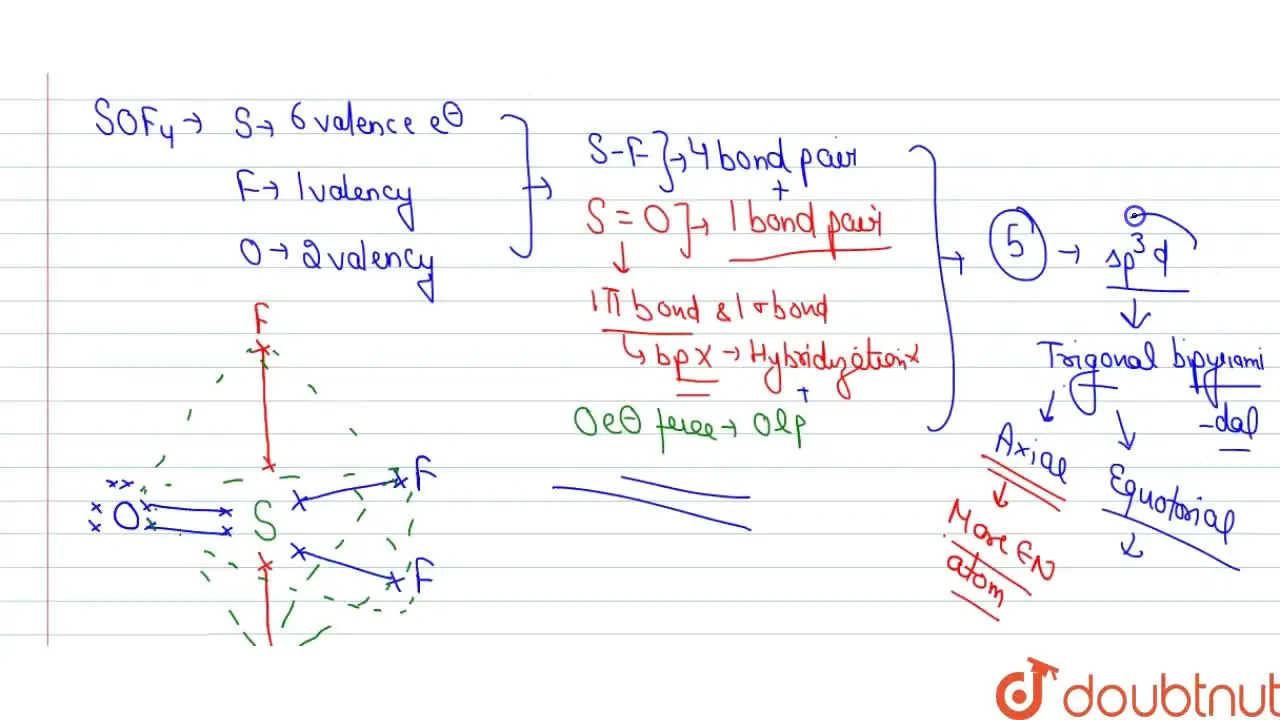 SOF4 → S → 6 valence e⊖
F → 1 valency
O → 2 valency
S-F } → 4 bond pair
+
S = O } → 1 bond pair
↓
1π bond & 1 σ bond
↳ bp X → Hybridization X
+
0 e⊖ free → 0 lp
→ 5 → sp³d
↓
Trigonal bipyrami
-dal
Axial
↓
More EN
atom
Equotorial
↓
F
O S F
F
doubtnut